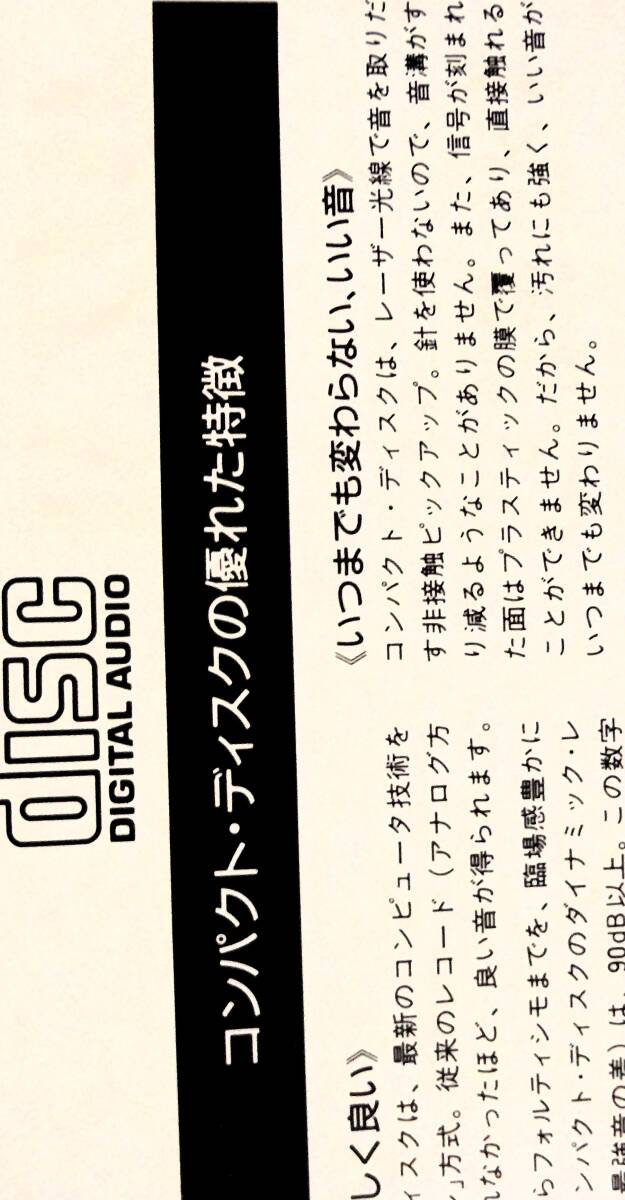 disc
DIGITAL AUDIO
コンパクト・ディスクの優れた特徴
しく良い》
ィスクは、最新のコンピュータ技術を
」方式。従来のレコード（アナログ方
なかったほど、良い音が得られます。
らフォルティシモまでを、臨場感豊かに
ンパクト・ディスクのダイナミック・レ
最強音の差）は、90dB以上。この数字
《いつまでも変わらない、いい音》
コンパクト・ディスクは、レーザー光線で音を取りだ
す非接触ピックアップ。針を使わないので、音溝がす
り減るようなことがありません。また、信号が刻まれ
た面はプラスティックの膜で覆ってあり、直接触れる
ことができません。だから、汚れにも強く、いい音が
いつまでも変わりません。